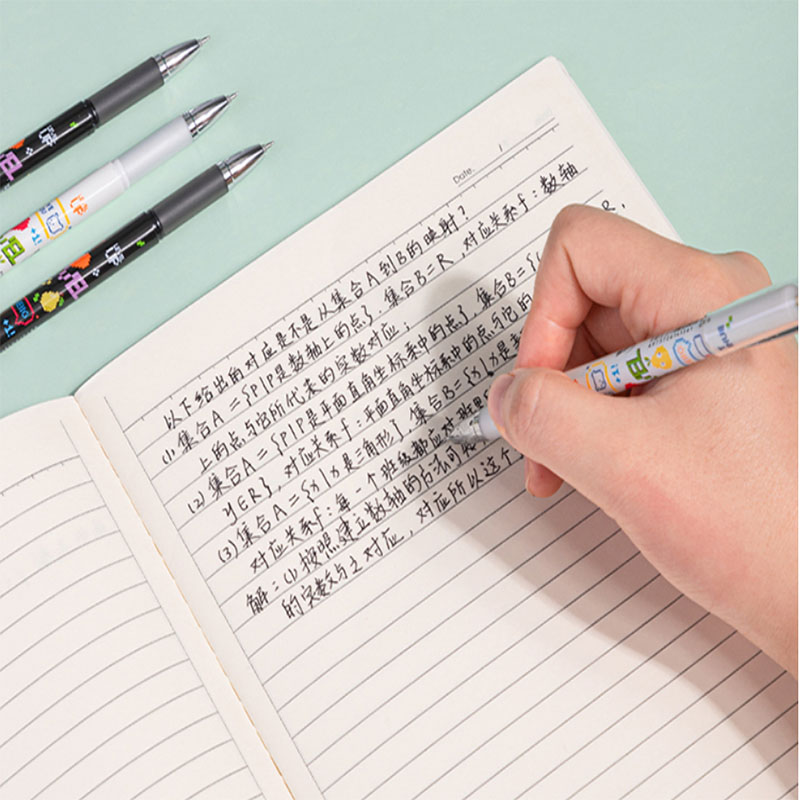 Date. /
以下给出的对应是不是从集合A到B的映射?
(1) 集合A={P|P是数轴上的点}, 集合B=R, 对应关系f: 数轴
上的点与它所代表的实数对应;
(2) 集合A={P|P是平面直角坐标系中的点}, 集合B={( R,
y∈R}, 对应关系f: 平面直角坐标系中的点与它的
(3) 集合A={x|x是三角形}, 集合B={x|x是
对应关系f: 每一个班级都应对班
解:(1) 按照建立数轴的方法可
的实数与之对应, 对应所以这个